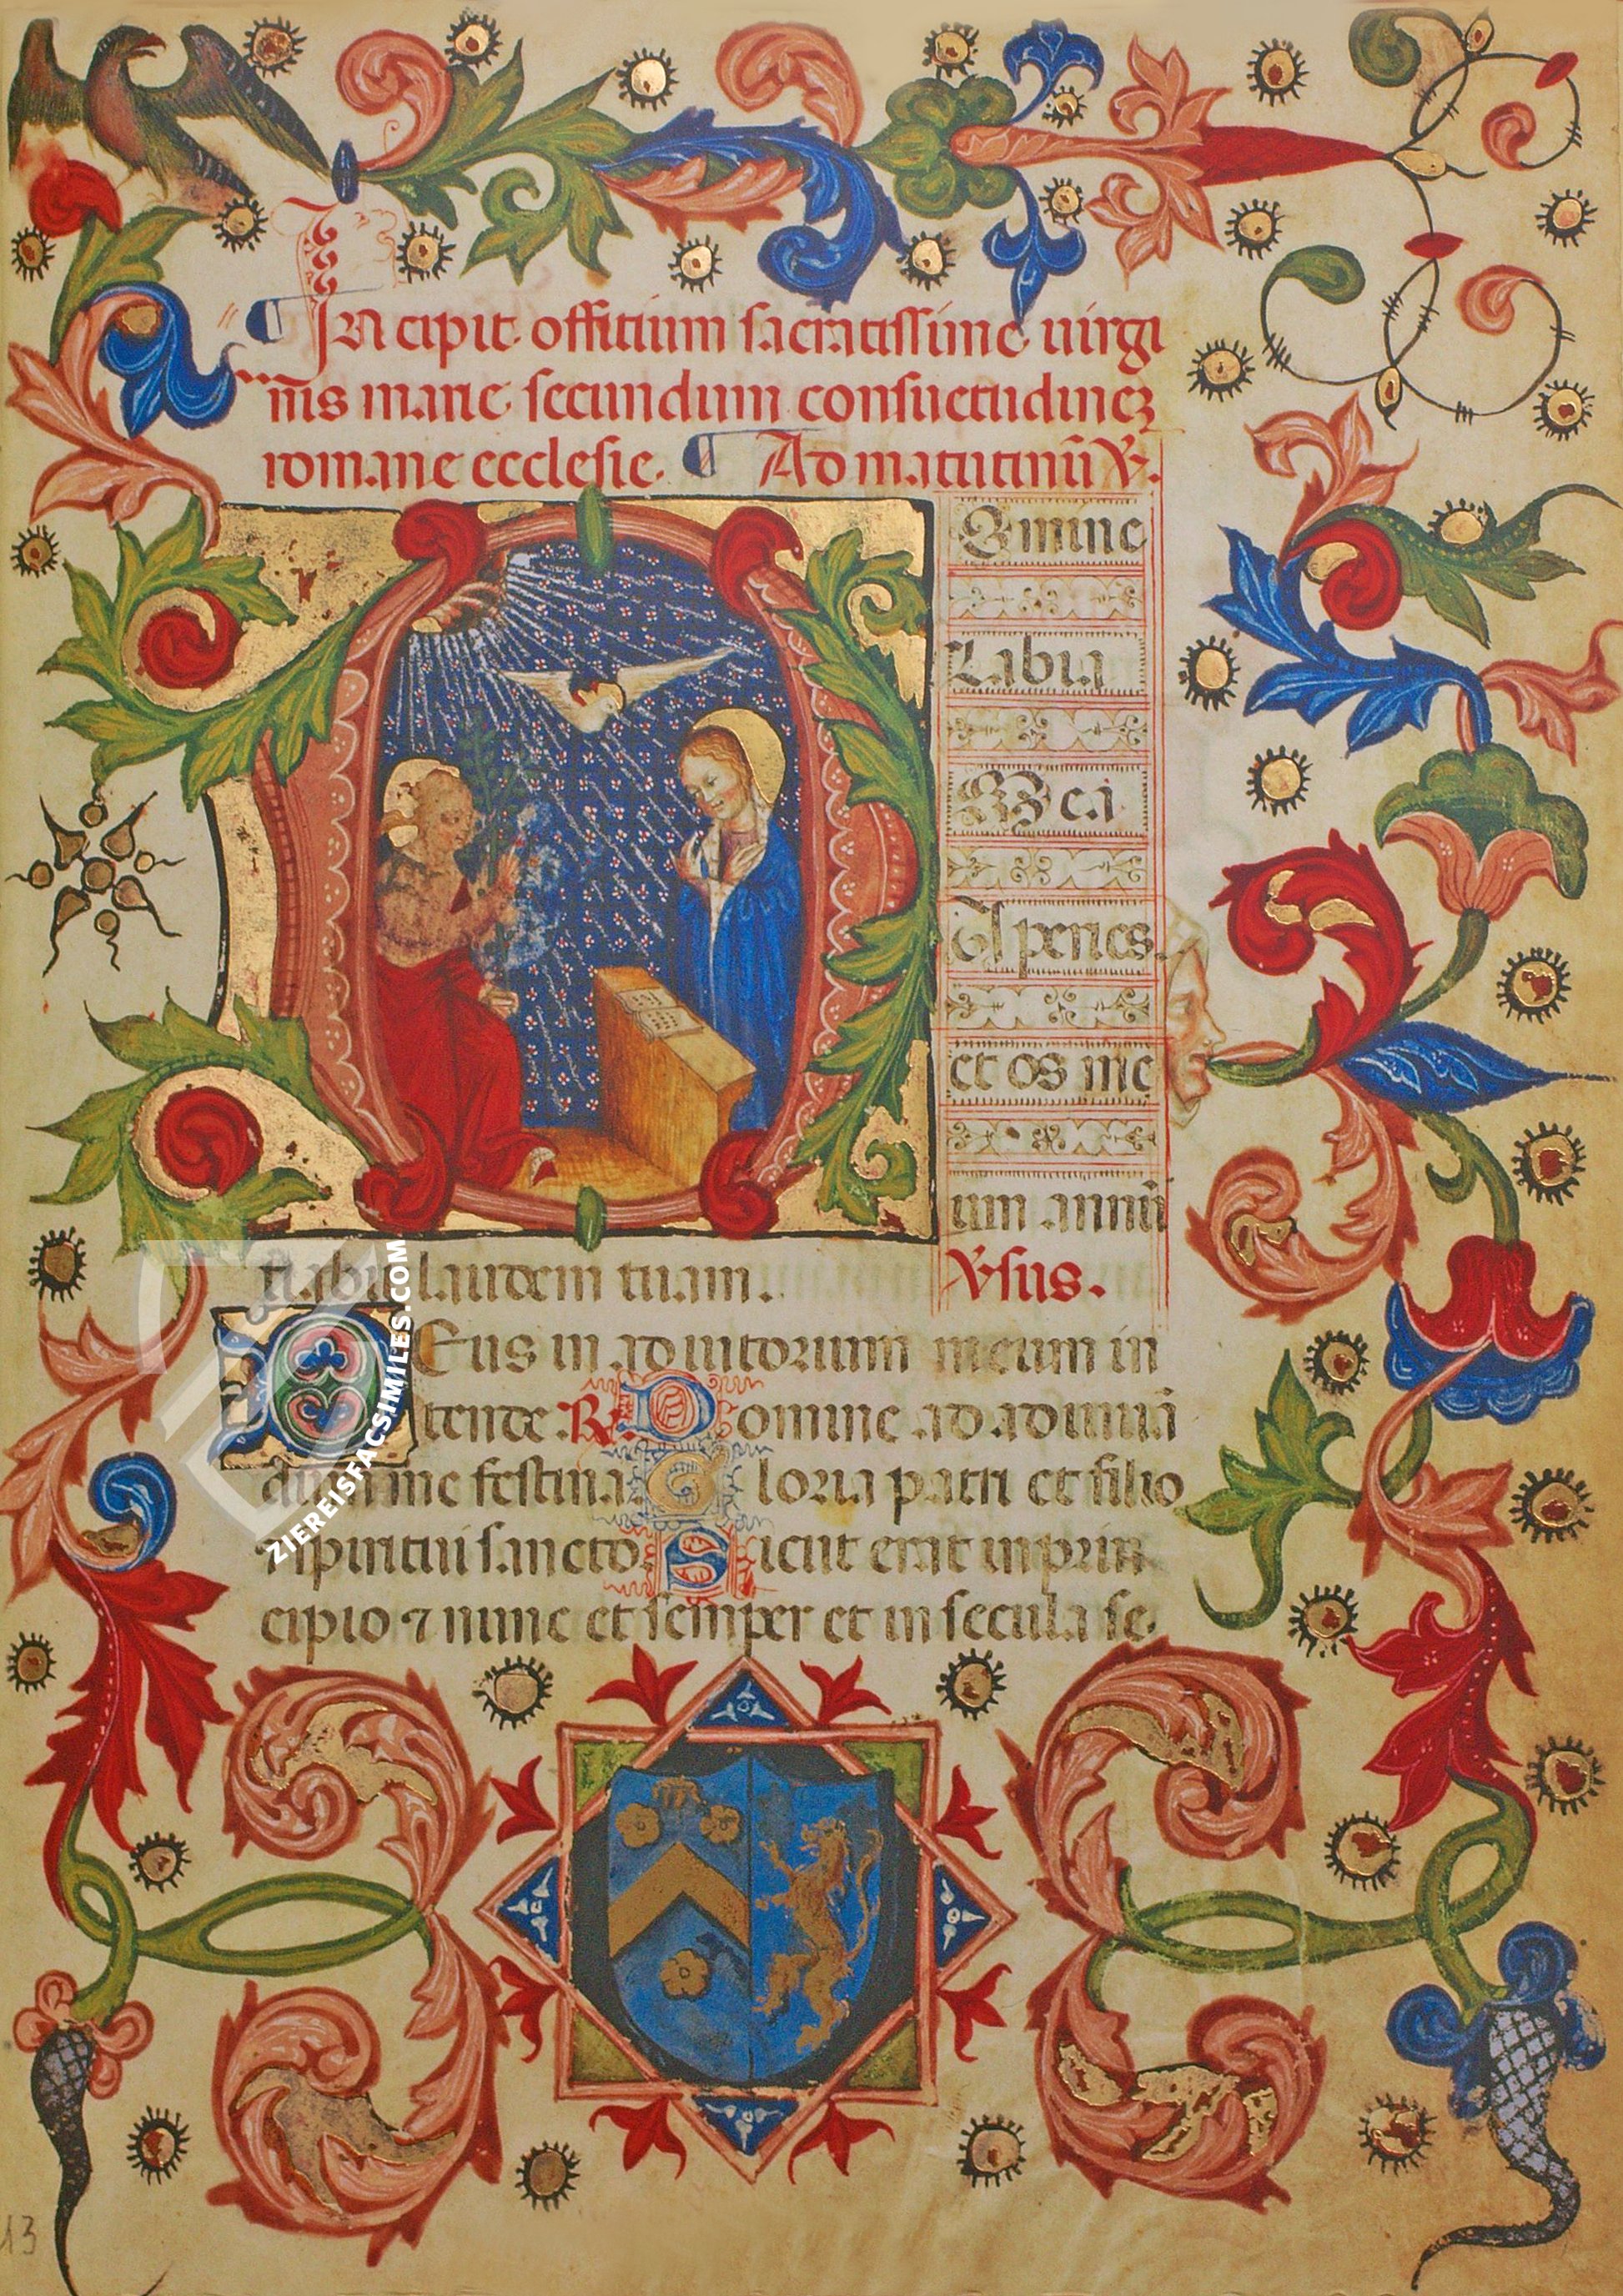 Incipit offitium sacratissime uirgi
nis marie secundum consuetudineʒ
romane ecclesie. Ad matutinũ ℣.
Domine
Labia
Mea
Aperies
et os me
um annũ
tiabit laudem tuam. Vsus.
Deus in adiutorium meum in
tende ℟. Domine ad adiuuã
dum me festina Gloria patri et filio
⁊ spiritui sancto. Sicut erat in prin
cipio ⁊ nunc et semper et in secula se
13
ZIEREISFACSIMILES.COM